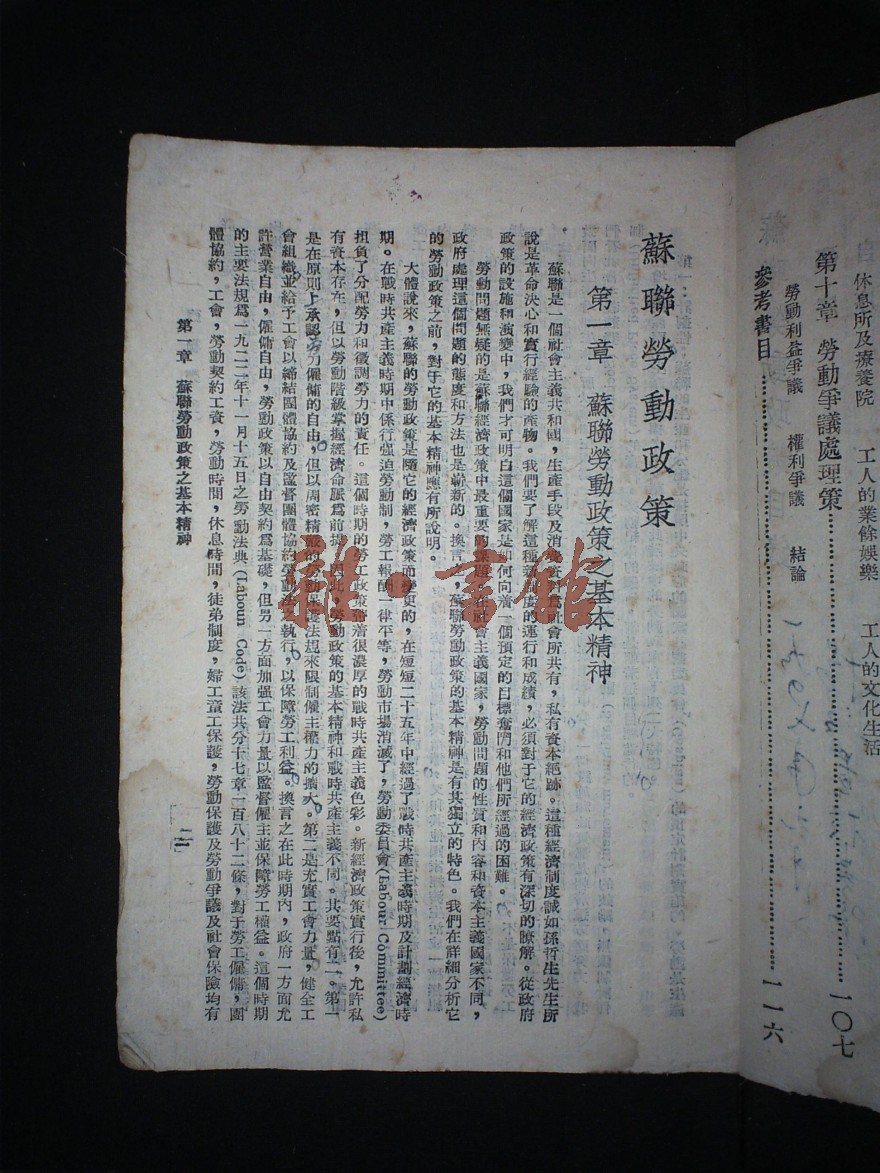 休息所及療養院　工人的業餘娛樂　工人的文化生活
第十章　勞動爭議處理策……一〇七
勞動利益爭議　權利爭議　結論
參考書目……一一六
蘇聯勞動政策
第一章　蘇聯勞動政策之基本精神
蘇聯是一個社會主義共和國，生產手段及消費資料爲社會所共有，私有資本絕跡。這種經濟制度誠如孫哲生先生所
說是革命決心和實行經驗的產物。我們要了解這種新制度的運行和成績，必須對于它的經濟政策有深切的瞭解。從政府
政策的設施和演變中，我們才可明白這個國家是如何向着一個預定的目標奮鬥和他們所經過的困難。
勞動問題無疑的是蘇聯經濟政策中最重要的課題。在社會主義國家，勞動問題的性質和內容和資本主義國家不同，
政府處理這個問題的態度和方法也是嶄新的。換言之，蘇聯勞動政策的基本精神是有其獨立的特色。我們在詳細分析它
的勞動政策之前，對于它的基本精神應有所說明。
大體說來，蘇聯的勞動政策是隨它的經濟政策而變更的，在短短二十五年中經過了戰時共產主義時期及計劃經濟時
期。在戰時共產主義時期中係行强迫勞動制，勞工報酬一律平等，勞動市場消滅了，勞動委員會(Labour Committee)
担負了分配勞力和徵調勞力的責任。這個時期的勞工政策帶着很濃厚的戰時共產主義色彩。新經濟政策實行後，允許私
有資本存在，但以勞動階級掌握經濟命脈爲前提，因此，勞動政策的基本精神和戰時共產主義不同。其要點有二。第一
是在原則上承認勞力僱傭的自由，但以周密精嚴的勞動保護法規來限制僱主權力的擴大。第二是充實工會力量，健全工
會組織並給予工會以締結團體協約及監督團體協約勞動法之執行，以保障勞工利益。換言之在此時期內，政府一方面允
許營業自由，僱傭自由，勞動政策以自由契約爲基礎，但另一方面加强工會力量以監督僱主並保障勞工權益。這個時期
的主要法規爲一九二二年十一月十五日之勞動法典(Laboun Code)該法共分十七章一百八十二條，對于勞工僱傭，團
體協約，工會，勞動契約工資，勞動時間，休息時間，徒弟制度，婦工童工保護，勞動保護及勞動爭議及社會保險均有
第一章　蘇聯勞動政策之基本精神
雜·書館